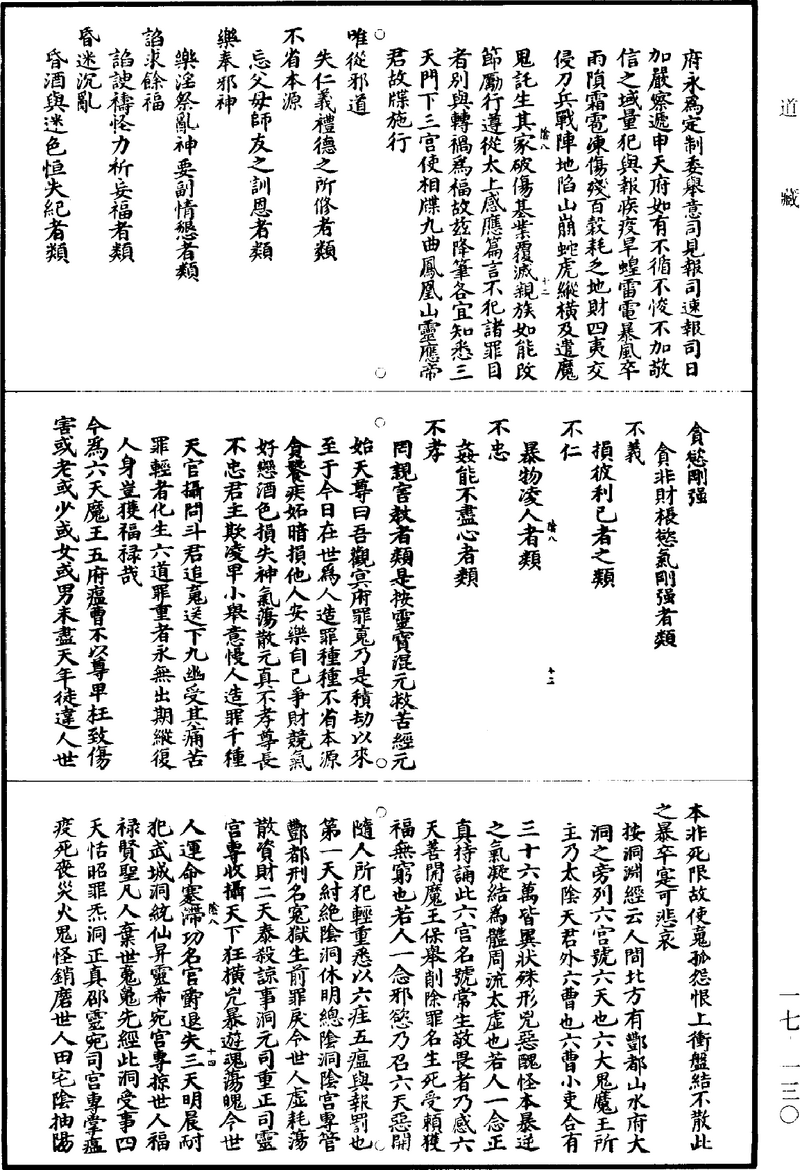 道藏
府永爲定制委舉意司見報司速報司日
加嚴察遞申天府如有不循不悛不加敬
信之域量犯與報疾疫旱蝗雷電暴風卒
雨隕霜雹凍傷殘百穀耗乏地財四夷交
侵刀兵戰陣地陷山崩蛇虎縱橫及遣魔
陰八
十二
鬼託生其家破傷基業覆滅親族如能改
節勵行遵從太上感應篇言不犯諸罪目
者別與轉禍爲福故茲降筆各宜知悉三
天門下三官使相牒九曲鳳凰山靈應帝
君故牒施行
唯從邪道
失仁義禮德之所修者類
不省本源
忘父母師友之訓恩者類
樂奉邪神
樂淫祭亂神要副情懇者類
諂求餘福
諂諛禱怪力祈妄福者類
昏迷沉亂
昏酒與迷色恒失紀者類
貪慾剛强
貪非財根慾氣剛强者類
不義
損彼利己者之類
不仁
陰八
十三
暴物凌人者類
不忠
姦能不盡心者類
不孝
罔親言教者類是按靈寶混元救苦經元
始天尊曰吾觀冥府罪䰟乃是積劫以來
至于今日在世爲人造罪種種不省本源
貪饕疾妬暗損他人安樂自己爭財競氣
好戀酒色損失神氣蕩散元真不孝尊長
不忠君主欺凌卑小舉意慢人造罪千種
天官攝問斗君追䰟送下九幽受其痛苦
罪輕者化生六道罪重者永無出期縱復
人身豈獲福禄哉
今爲六天魔王五府瘟曹不以尊卑枉致傷
害或老或少或女或男未盡天年徒違人世
本非死限故使䰟孤怨恨上衝盤結不散此
之暴卒寔可悲哀
按洞淵經云人間北方有酆都山水府大
洞之旁列六宫號六天也六大鬼魔王所
主乃太陰天君外六曹也六曹小吏合有
三十六萬皆異狀殊形兇惡醜怪本暴逆
之氣凝結爲體周流太虛也若人一念正
真持誦此六宫名號常生敬畏者乃感六
天善開魔王保舉削除罪名生死受賴獲
福無窮也若人一念邪慾乃召六天惡開
隨人所犯輕重悉以六疰五瘟與報罰也
第一天紂絶陰洞休明總陰洞陰宫專管
酆都刑名寃獄生前罪戾今世人虛耗蕩
散資財二天泰殺諒事洞元司重正司靈
宫專收攝天下狂橫兇暴遊魂蕩魄今世
陰八
十四
人運命蹇滯功名官爵退失三天明晨耐
犯武城洞統仙昇靈希宛宫專掠世人福
禄賢聖凡人棄世䰟䰟先經此洞受事四
天怙昭罪炁洞正真邵靈宛司宫專掌瘟
疫死喪災火鬼怪銷磨世人田宅陰抽陽
一七‧一三〇